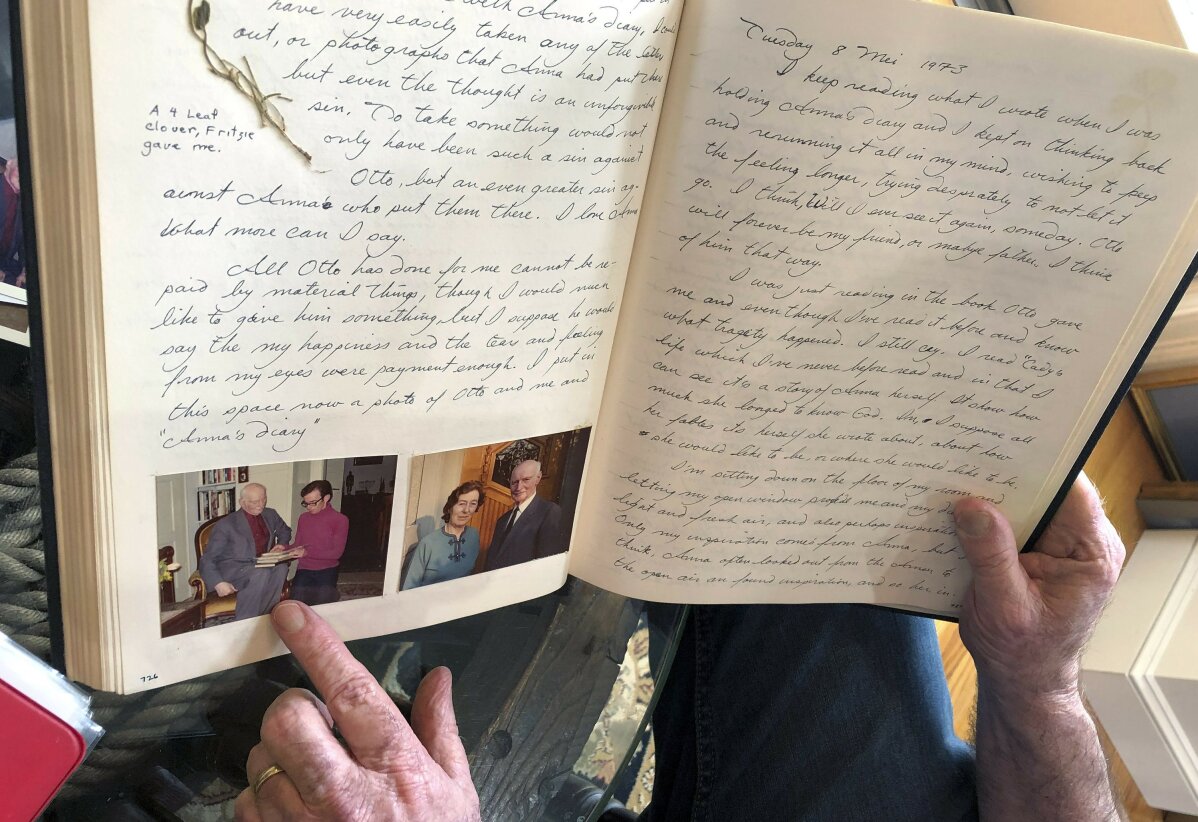 with Anna's diary, I could
have very easily taken any of the letters
out, or photographs that Anna had put there
but even the thought is an unforgivable
sin. To take something would not
only have been such a sin against
Otto, but an even greater sin ag-
ainst Anna who put them there. I love Anna
What more can I say.
All Otto has done for me cannot be re-
paid by material things, though I would much
like to gave him something, but I suppose he would
say the my happiness and the tear and feeling
from my eyes were payment enough. I put in
this space now a photo of Otto and me and
"Anna's diary"
A 4 Leaf
clover, Fritzie
gave me.
726
Tuesday 8 Mei 1973
I keep reading what I wrote when I was
holding Anna's diary and I kept on thinking back
and rerunning it all in my mind, wishing to keep
the feeling longer, trying desprately to not let it
go. I think, Will I ever see it again, someday. Otto
will forever be my friend, or mabye father. I think
of him that way.
I was just reading in the book Otto gave
me and even though I've read it before and know
what tragety happened. I still cry. I read "Cady's
life which I've never before read and in that I
can see it's a story of Anna herself. It show how
much she longed to know God. I suppose all
her fables its herself she wrote about, about how
she would like to be, or where she would like to be.
I'm setting down on the floor of my room and
letting my open window provide me and my
light and fresh air, and also perhaps inspiration
Only my inspiration comes from Anna, but I
think, Anna often looked out from the Annex to
the open air an found inspiration, and so her in-